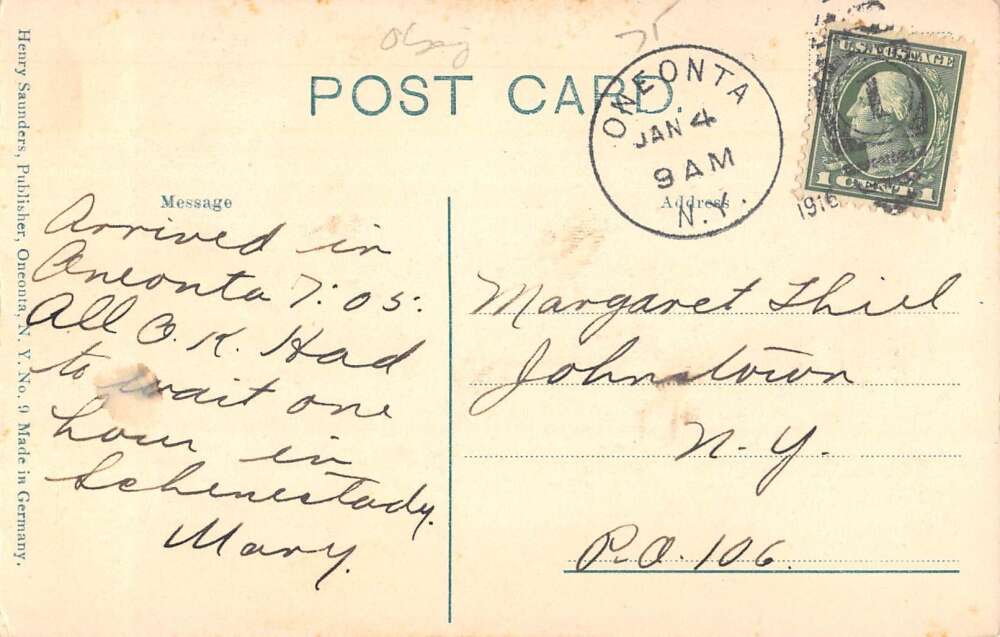 POST CARD.
ONEONTA
JAN 4
9 AM
N.Y.
U.S. POSTAGE
1 CENT 1
Henry Saunders, Publisher, Oneonta, N. Y. No. 9 Made in Germany.
Message
Arrived in
Oneonta 7:05:
All O.K. Had
to wait one
hour in
Schenestady.
Mary.
Address
Margaret Thiel
Johnstown
N.Y.
P.O. 106.